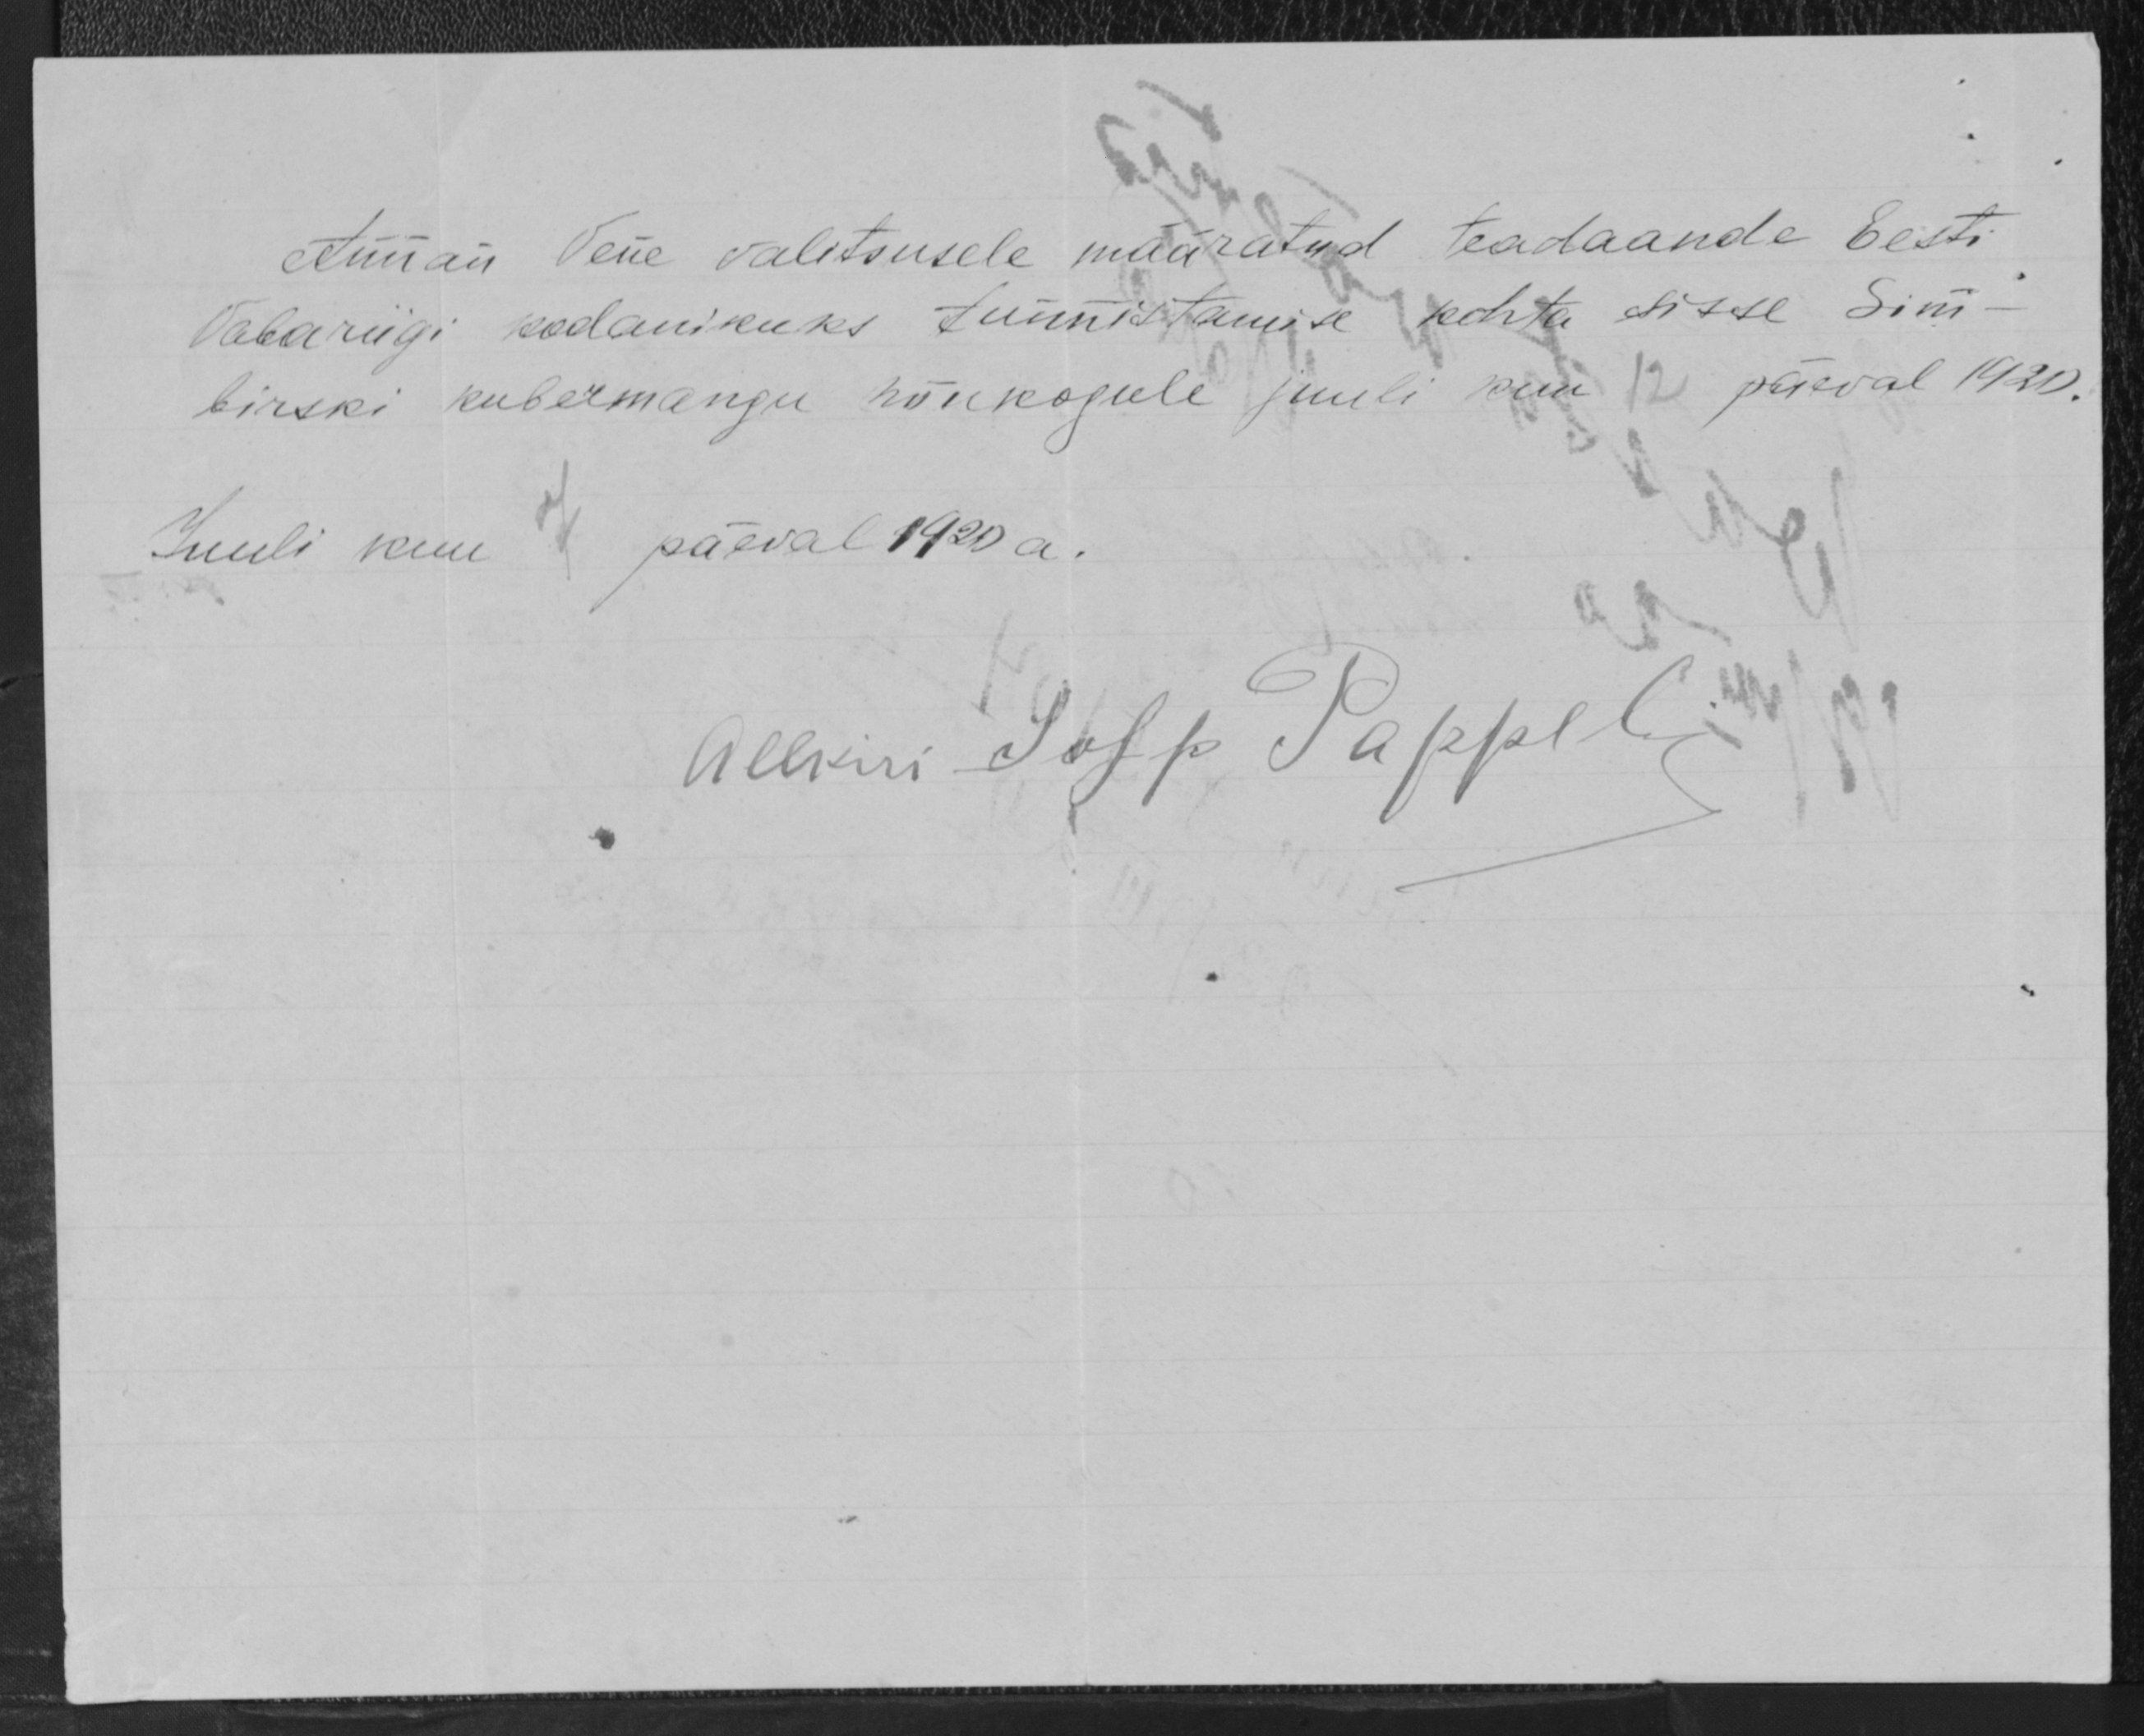 Annan Vene valitsusele määratud teadaande Eesti
Vabariigi kodanikuks tunnistamise kohta sisse Sim-
birski kubermangu nõukogule juuli kuu 12 päeval 1920.
Juuli kuu 7 päeval 1920 a.
Allkiri Josp Pappel